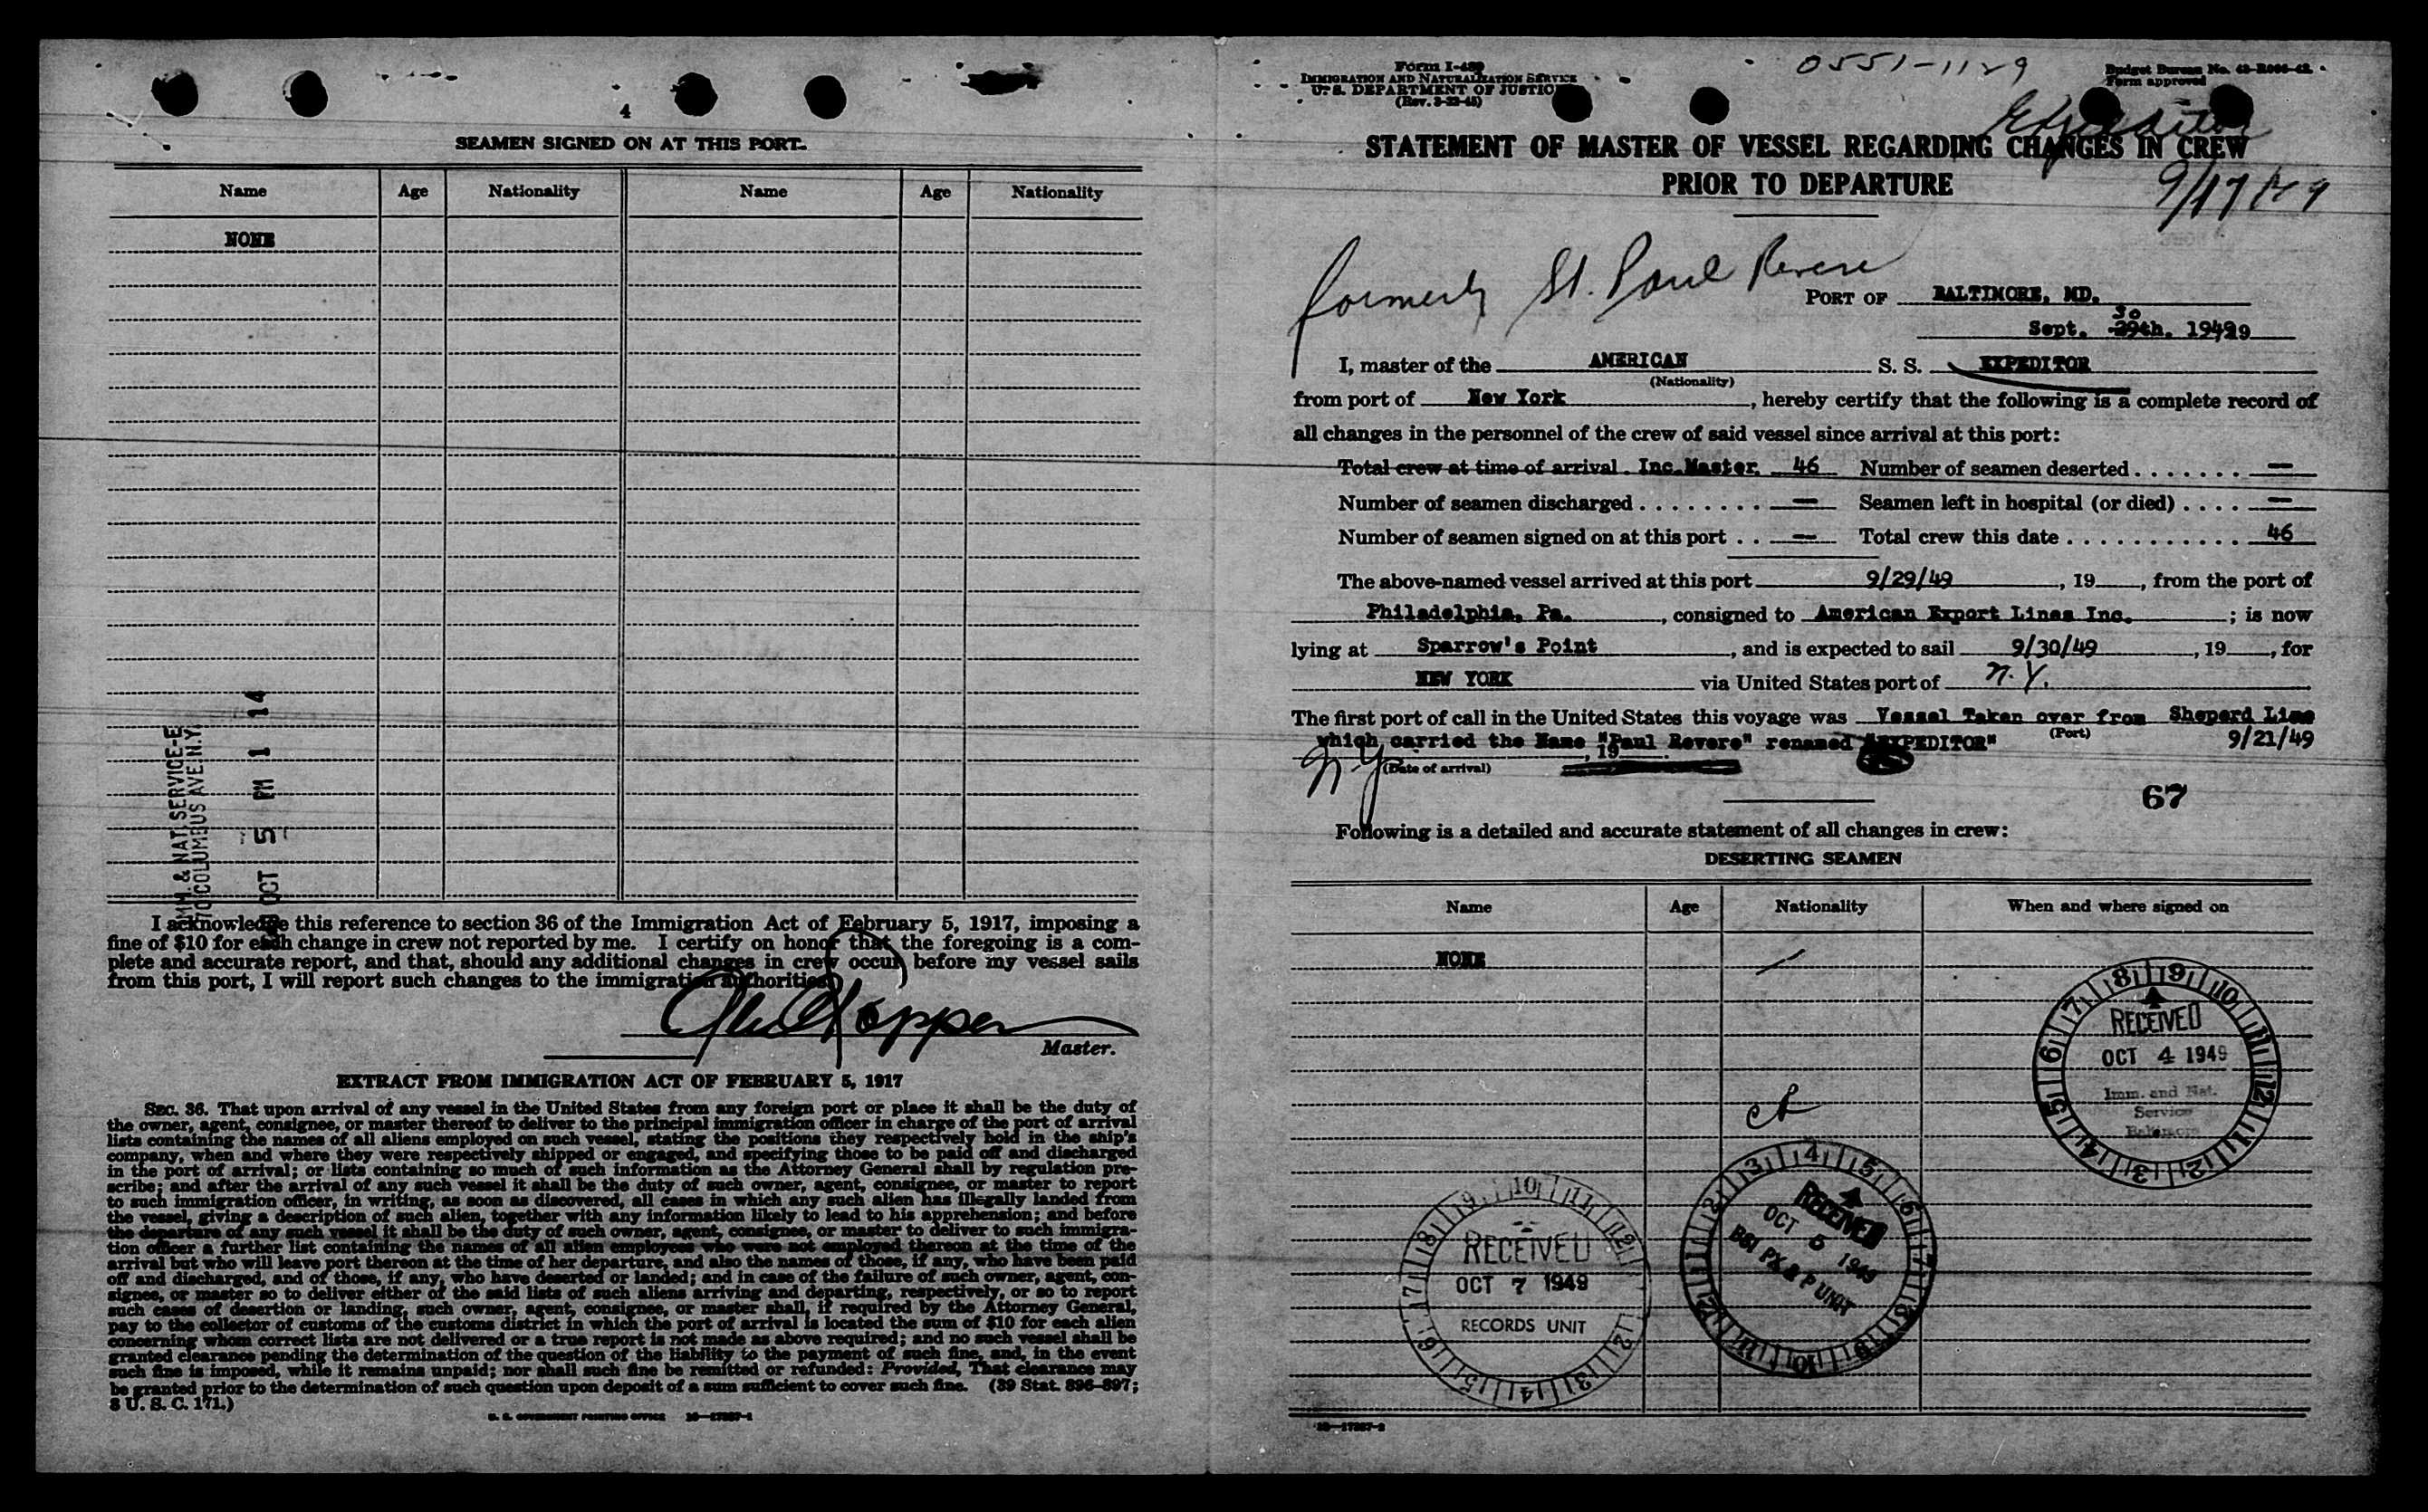 4
SEAMEN SIGNED ON AT THIS PORT.
Name Age Nationality Name Age Nationality
NONE
IMM. & NAT. SERVICE-E
70 COLUMBUS AVE N.Y.
OCT 5 PM 1 14
I acknowledge this reference to section 36 of the Immigration Act of February 5, 1917, imposing a
fine of $10 for each change in crew not reported by me. I certify on honor that the foregoing is a com-
plete and accurate report, and that, should any additional changes in crew occur before my vessel sails
from this port, I will report such changes to the immigration authorities.
Master.
EXTRACT FROM IMMIGRATION ACT OF FEBRUARY 5, 1917
SEC. 36. That upon arrival of any vessel in the United States from any foreign port or place it shall be the duty of
the owner, agent, consignee, or master thereof to deliver to the principal immigration officer in charge of the port of arrival
lists containing the names of all aliens employed on such vessel, stating the positions they respectively hold in the ship's
company, when and where they were respectively shipped or engaged, and specifying those to be paid off and discharged
in the port of arrival; or lists containing so much of such information as the Attorney General shall by regulation pre-
scribe; and after the arrival of any such vessel it shall be the duty of such owner, agent, consignee, or master to report
to such immigration officer, in writing, as soon as discovered, all cases in which any such alien has illegally landed from
the vessel, giving a description of such alien, together with any information likely to lead to his apprehension; and before
the departure of any such vessel it shall be the duty of such owner, agent, consignee, or master to deliver to such immigra-
tion officer a further list containing the names of all alien employees who were not employed thereon at the time of the
arrival but who will leave port thereon at the time of her departure, and also the names of those, if any, who have been paid
off and discharged, and of those, if any, who have deserted or landed; and in case of the failure of such owner, agent, con-
signee, or master so to deliver either of the said lists of such aliens arriving and departing, respectively, or so to report
such cases of desertion or landing, such owner, agent, consignee, or master shall, if required by the Attorney General,
pay to the collector of customs of the customs district in which the port of arrival is located the sum of $10 for each alien
concerning whom correct lists are not delivered or a true report is not made as above required; and no such vessel shall be
granted clearance pending the determination of the question of the liability to the payment of such fine, and, in the event
such fine is imposed, while it remains unpaid; nor shall such fine be remitted or refunded: Provided, That clearance may
be granted prior to the determination of such question upon deposit of a sum sufficient to cover such fine. (39 Stat. 896-897;
8 U. S. C. 171.)
U. S. GOVERNMENT PRINTING OFFICE 16-17257-1
Form I-489
IMMIGRATION AND NATURALIZATION SERVICE
U. S. DEPARTMENT OF JUSTICE
(Rev. 3-22-45)
0551-1129
Budget Bureau No. 43-R096-42.
Form approved
Expeditor
9/17/49
STATEMENT OF MASTER OF VESSEL REGARDING CHANGES IN CREW
PRIOR TO DEPARTURE
formerly St. Paul Revere
PORT OF BALTIMORE, MD.
Sept. 30 29th. 1949
I, master of the AMERICAN S. S. EXPEDITOR
(Nationality)
from port of New York, hereby certify that the following is a complete record of
all changes in the personnel of the crew of said vessel since arrival at this port:
Total crew at time of arrival Inc. Master. 46 Number of seamen deserted —
Number of seamen discharged — Seamen left in hospital (or died) —
Number of seamen signed on at this port — Total crew this date 46
The above-named vessel arrived at this port 9/29/49, 19, from the port of
Philadelphia, Pa., consigned to American Export Lines Inc.; is now
lying at Sparrow's Point, and is expected to sail 9/30/49, 19, for
NEW YORK via United States port of N.Y.
The first port of call in the United States this voyage was Vessel Taken over from Sheperd Line
which carried the Name "Paul Revere" renamed "EXPEDITOR" (Port) 9/21/49
N.Y. , 19
(Date of arrival)
67
Following is a detailed and accurate statement of all changes in crew:
DESERTING SEAMEN
Name Age Nationality When and where signed on
NONE
RECEIVED
OCT 4 1949
Imm. and Nat.
Service
Baltimore
RECEIVED
OCT 5 1949
RECEIVED
OCT 7 1949
RECORDS UNIT
16-17257-2